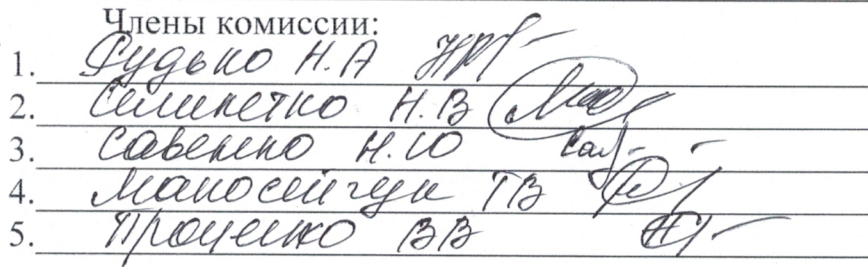 Члены комиссии:
1. Рудько Н.А
2. Селипетко Н.В
3. Савенко Н.Ю
4. Маносейчук ТВ
5. Проценко ВВ